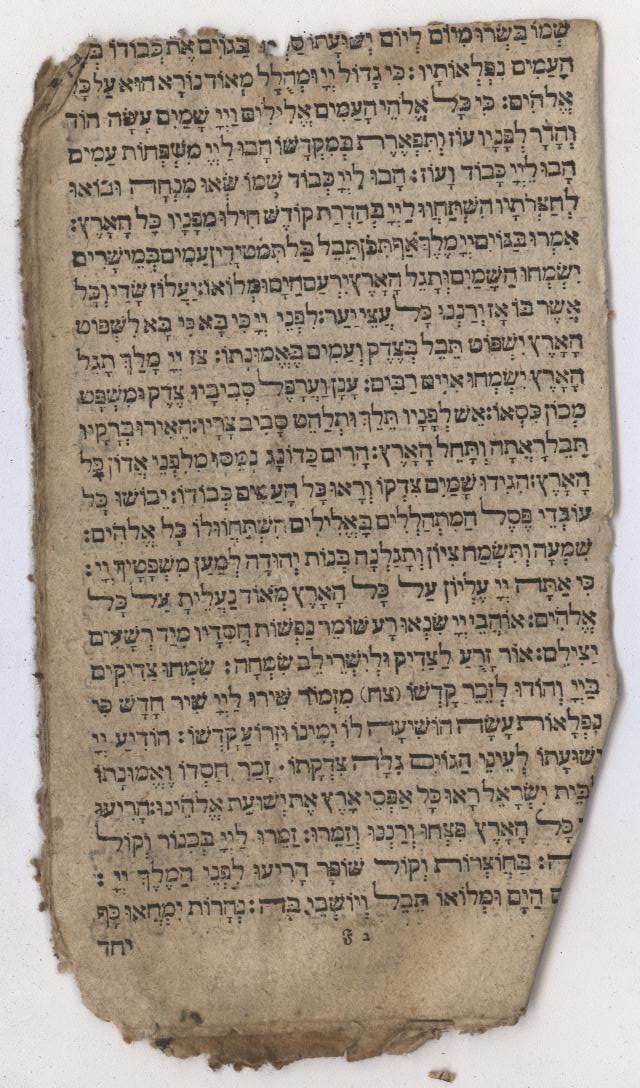 שְׁמוֹ בַּשְּׂרוּ מִיּוֹם לְיוֹם יְשׁוּעָתוֹ בַּגּוֹיִם אֶת כְּבוֹדוֹ
הָעַמִּים נִפְלְאוֹתָיו: כִּי גָדוֹל יְיָ וּמְהֻלָּל מְאוֹד נוֹרָא הוּא עַל כָּל
אֱלֹהִים: כִּי כָּל אֱלֹהֵי הָעַמִּים אֱלִילִים וַיְיָ שָׁמַיִם עָשָׂה הוֹד
וְהָדָר לְפָנָיו עוֹז וְתִפְאֶרֶת בְּמִקְדָּשׁוֹ הָבוּ לַיְיָ מִשְׁפְּחוֹת עַמִּים
הָבוּ לַיְיָ כָּבוֹד וָעוֹז: הָבוּ לַיְיָ כְּבוֹד שְׁמוֹ שְׂאוּ מִנְחָה וּבוֹאוּ
לְחַצְרֹתָיו הִשְׁתַּחֲווּ לַיְיָ בְּהַדְרַת קוֹדֶשׁ חִילוּ מִפָּנָיו כָּל הָאָרֶץ:
אִמְרוּ בַגּוֹיִם יְיָ מֶלֶךְ אַף תִּכֹּן תֵּבֵל בַּל תִּמֹּט יָדִין עַמִּים בְּמֵישָׁרִים
יִשְׂמְחוּ הַשָּׁמַיִם וְתָגֵל הָאָרֶץ יִרְעַם הַיָּם וּמְלוֹאוֹ: יַעֲלוֹז שָׂדַי וְכָל
אֲשֶׁר בּוֹ אָז יְרַנְּנוּ כָּל עֲצֵי יַעַר: לִפְנֵי יְיָ כִּי בָא כִּי בָא לִשְׁפּוֹט
הָאָרֶץ יִשְׁפּוֹט תֵּבֵל בְּצֶדֶק וְעַמִּים בֶּאֱמוּנָתוֹ: צז יְיָ מָלַךְ תָּגֵל
הָאָרֶץ יִשְׂמְחוּ אִיִּים רַבִּים: עָנָן וַעֲרָפֶל סְבִיבָיו צֶדֶק וּמִשְׁפָּט
מְכוֹן כִּסְאוֹ: אֵשׁ לְפָנָיו תֵּלֵךְ וּתְלַהֵט סָבִיב צָרָיו: הֵאִירוּ בְרָקָיו
תֵּבֵל רָאֲתָה וַתָּחֵל הָאָרֶץ: הָרִים כַּדּוֹנַג נָמַסּוּ מִלִּפְנֵי אֲדוֹן כָּל
הָאָרֶץ: הִגִּידוּ שָׁמַיִם צִדְקוֹ וְרָאוּ כָל הָעַמִּים כְּבוֹדוֹ: יֵבוֹשׁוּ כָּל
עוֹבְדֵי פֶסֶל הַמִּתְהַלְלִים בָּאֱלִילִים הִשְׁתַּחֲווּ לוֹ כָּל אֱלֹהִים:
שָׁמְעָה וַתִּשְׂמַח צִיּוֹן וַתָּגֵלְנָה בְּנוֹת יְהוּדָה לְמַעַן מִשְׁפָּטֶיךָ יְיָ:
כִּי אַתָּה יְיָ עֶלְיוֹן עַל כָּל הָאָרֶץ מְאוֹד נַעֲלֵיתָ עַל כָּל
אֱלֹהִים: אוֹהֲבֵי יְיָ שִׂנְאוּ רָע שׁוֹמֵר נַפְשׁוֹת חֲסִידָיו מִיַּד רְשָׁעִים
יַצִּילֵם: אוֹר זָרֻעַ לַצַּדִּיק וּלְיִשְׁרֵי לֵב שִׂמְחָה: שִׂמְחוּ צַדִּיקִים
בַּיְיָ וְהוֹדוּ לְזֵכֶר קָדְשׁוֹ (צח) מִזְמוֹר שִׁירוּ לַיְיָ שִׁיר חָדָשׁ כִּי
נִפְלָאוֹת עָשָׂה הוֹשִׁיעָה לּוֹ יְמִינוֹ וּזְרוֹעַ קָדְשׁוֹ: הוֹדִיעַ יְיָ
יְשׁוּעָתוֹ לְעֵינֵי הַגּוֹיִם גִּלָּה צִדְקָתוֹ. זָכַר חַסְדּוֹ וֶאֱמוּנָתוֹ
לְבֵית יִשְׂרָאֵל רָאוּ כָל אַפְסֵי אָרֶץ אֶת יְשׁוּעַת אֱלֹהֵינוּ: הָרִיעוּ
כָּל הָאָרֶץ פִּצְחוּ וְרַנְּנוּ וְזַמֵּרוּ: זַמְּרוּ לַיְיָ בְּכִנּוֹר וְקוֹל
בַּחֲצוֹצְרוֹת וְקוֹל שׁוֹפָר הָרִיעוּ לִפְנֵי הַמֶּלֶךְ יְיָ:
הַיָּם וּמְלוֹאוֹ תֵּבֵל וְיוֹשְׁבֵי בָהּ: נְהָרוֹת יִמְחֲאוּ כָף
יחד